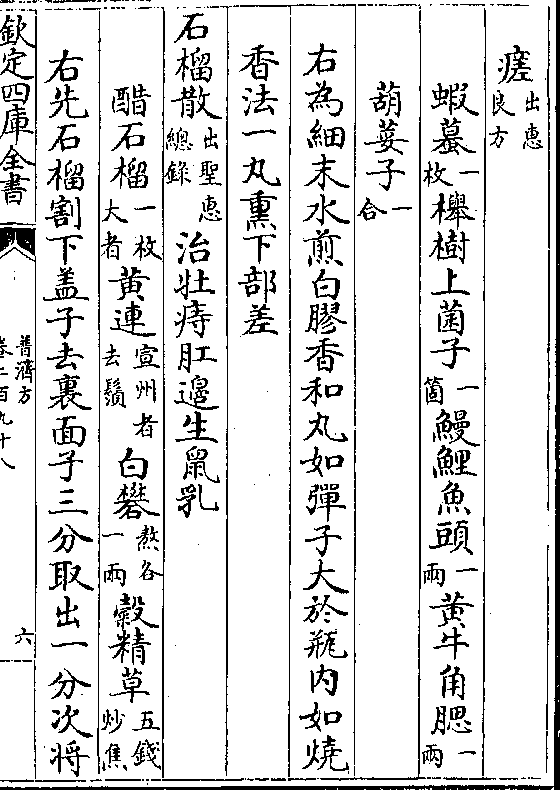 瘥出惠良方
蝦蟇一枚櫸樹上菌子一箇鰻鯉魚頭一兩黃牛角腮一兩
葫荽子一合
右為細末水煎白膠香和丸如彈子大於瓶内如燒
香法一丸熏下部差
石榴散出聖惠總錄治壮痔肛邊生鼠乳
醋石榴一枚大者黃連宣州者去鬚白礬熬各一兩榖精草五錢炒焦
右先石榴割下盖子去裏面子三分取出一分次將
欽定四庫全書
普濟方
卷二百九十八
六